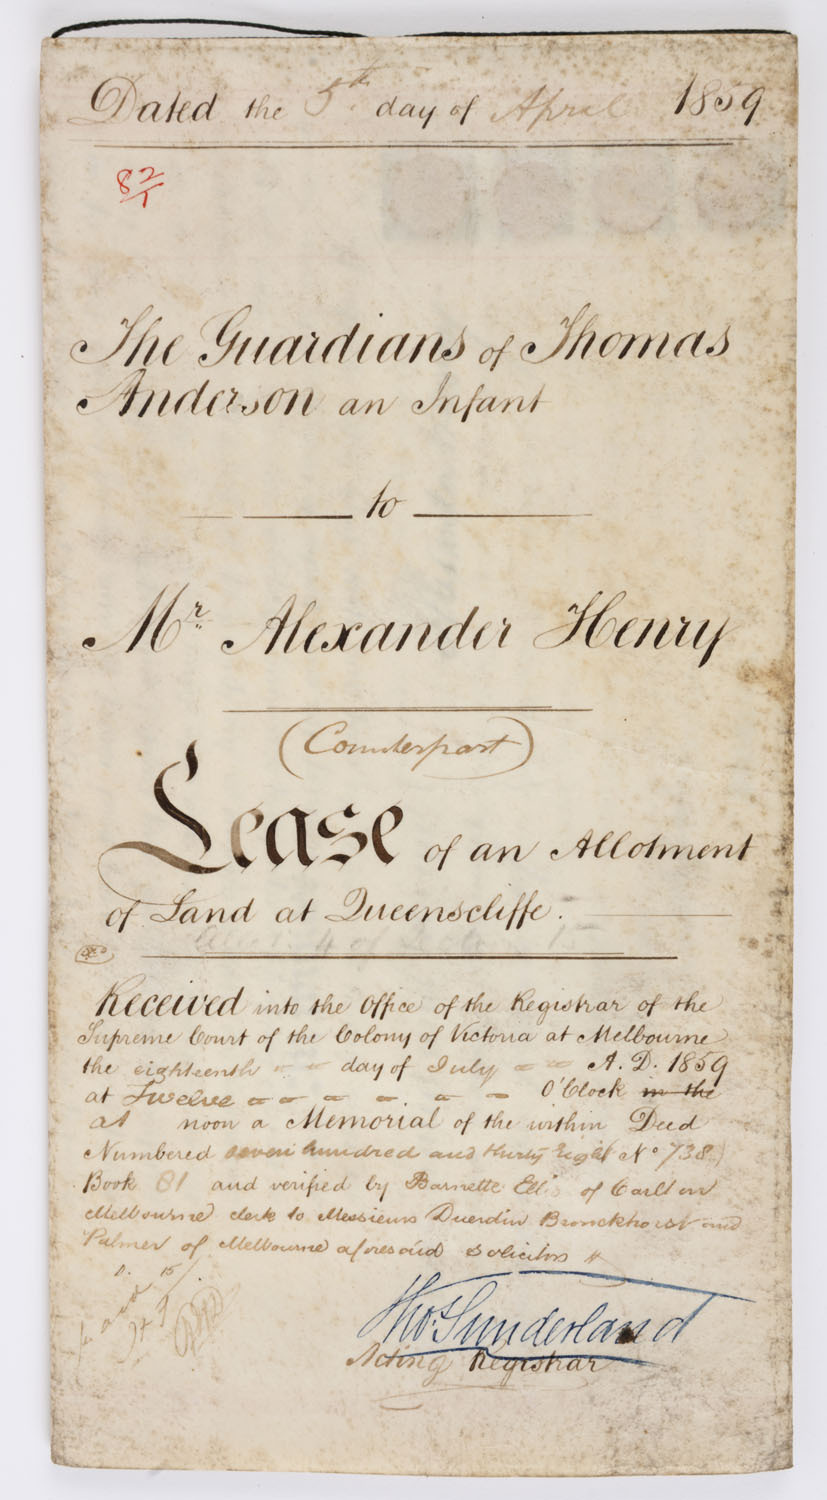 Dated the 5th day of April 1859
82/1
The Guardians of Thomas
Anderson an Infant
to
Mr Alexander Henry
(Counterpart)
Lease of an Allotment
of Land at Queenscliffe.
Received into the Office of the Registrar of the
Supreme Court of the Colony of Victoria at Melbourne
the eighteenth day of July A. D. 1859
at Twelve O'Clock in the
at noon a Memorial of the within Deed
Numbered seven hundred and thirty eight No 738)
Book 81 and verified by Barnette Ellis of Carlton
Melbourne clerk to Messieurs Duerdin Bronckhorst and
Palmer of Melbourne aforesaid Solicitors
Thos Sunderland
Acting Registrar